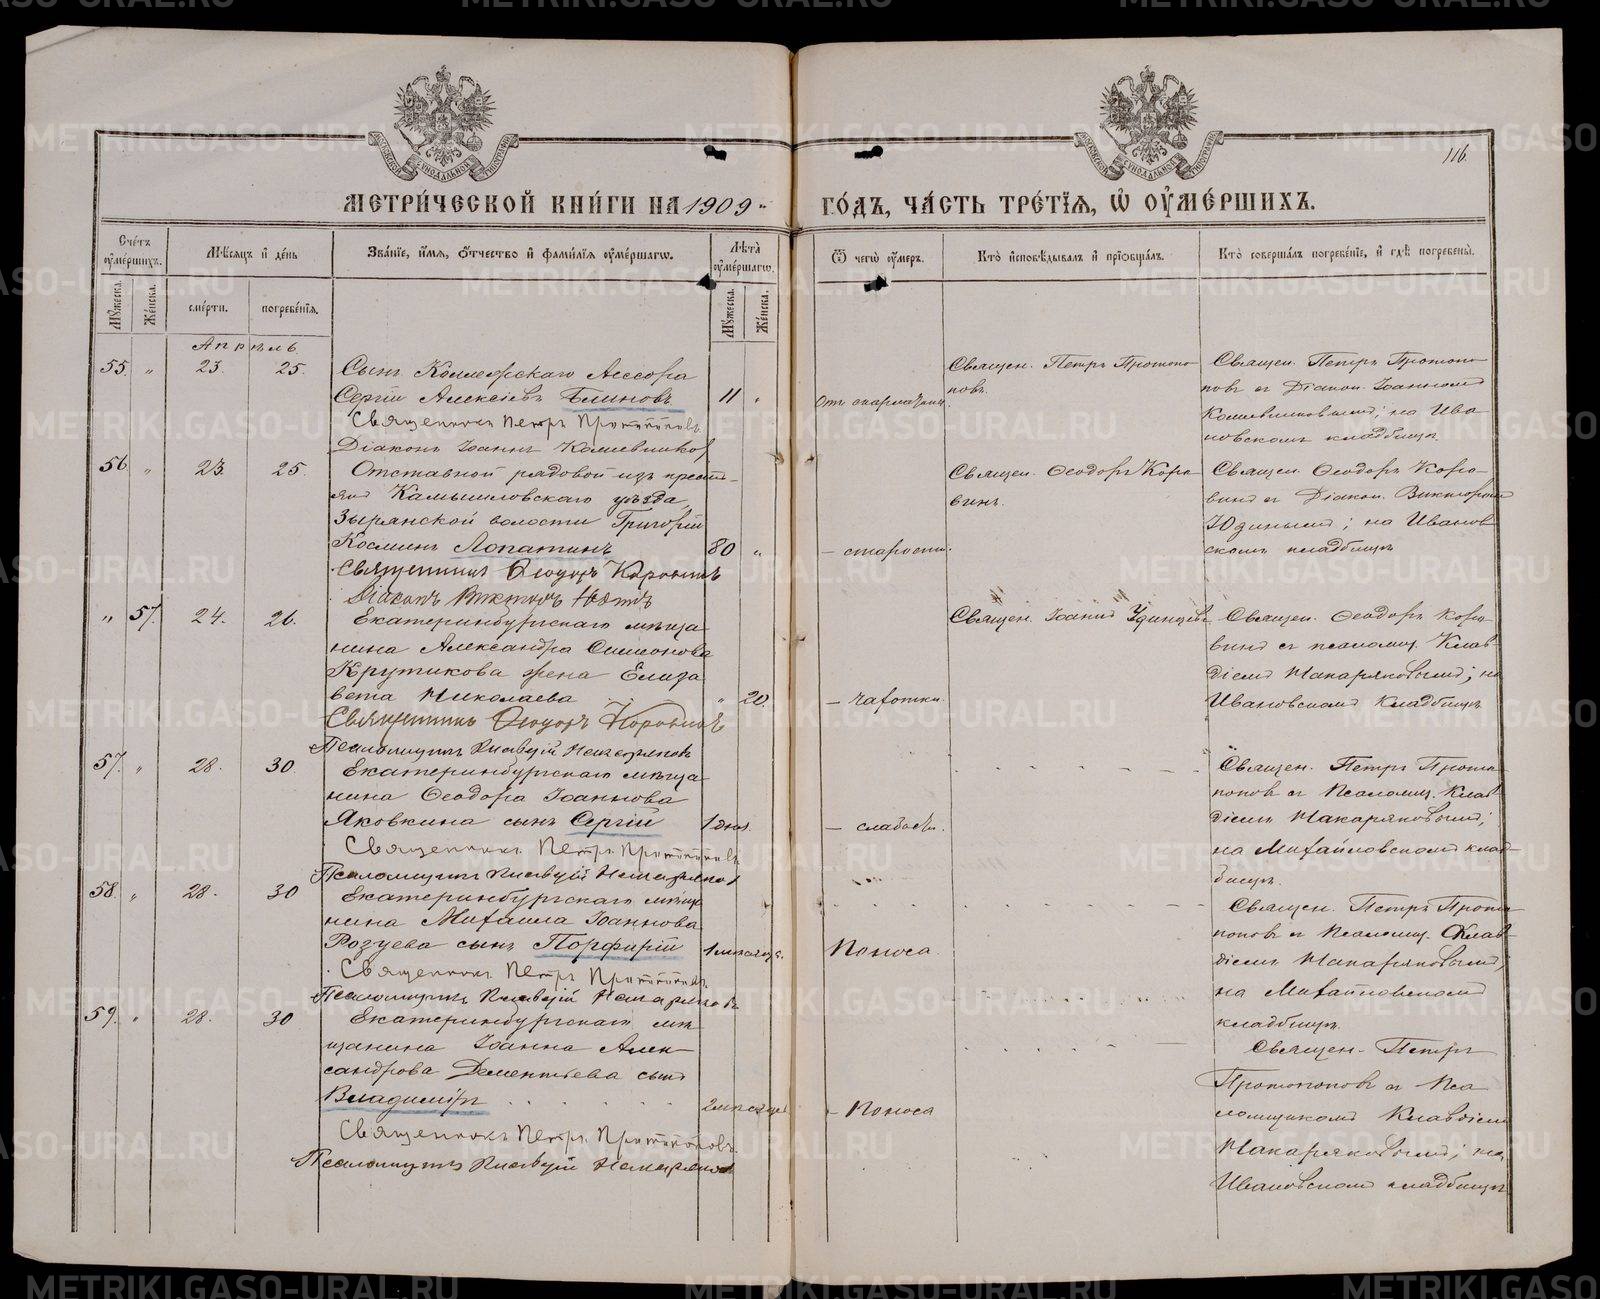 116.
МЕТРИ́ЧЕСКОЙ КНИ́ГИ НА 1909 ГО́ДЪ, ЧА́СТЬ ТРЕ́ТІѦ, Ѡ ОУ҆МЕ́РШИХЪ.
Сче́тъ оу҆ме́ршихъ.
Мѣ́сѧцъ и҆ де́нь
Зва́нїе, и҆́мѧ, о҆́тчество и҆ фами́лїѧ оу҆ме́ршагѡ.
Лѣ́та оу҆ме́ршагѡ.
Ѿ чегѡ̀ оу҆́меръ.
Кто̀ и҆сповѣ́дывалъ и҆ прїѡбща́лъ.
Кто̀ соверша́лъ погребе́нїе, и҆ гдѣ̀ погребены̀.
Му́жеска. Же́нска. сме́рти. погребе́нїѧ. Му́жеска. Же́нска.
Апрѣль
55. " 23. 25. Сынъ Коллежскаго Ассесора
Сергій Алексіевъ Блиновъ 11 " Отъ скарлатины.
Священникъ Петръ Протопоповъ
Діаконъ Іоаннъ Кошевниковъ
Священ. Петръ Протопо-
повъ.
Священ. Петръ Протопо-
повъ съ Діакон. Іоанномъ
на Ива-
новскомъ кладбищѣ
56 " 23. 25. Отставной рядовой изъ кресть-
янъ Камышловскаго уѣзда,
Зырянской волости Григорій
Косминъ Лопатинъ 80 " – старости.
Священникъ Ѳеодоръ Коровинъ
Діаконъ Викторъ Юдинъ
Священ. Ѳеодоръ Коро-
винъ.
Священ. Ѳеодоръ Коро-
винъ съ Діакон. Викторомъ
Юдинымъ; на Иванов-
скомъ кладбищѣ
" 57. 24. 26. Екатеринбургскаго мѣща-
нина Александра Симеонова
Крутикова жена Елиза-
вета Николаева " 20. – чахотки.
Священникъ Ѳеодоръ Коровинъ
Псаломщикъ Клавдій Макаряковъ
Священ. Іоаннъ Удинцевъ
Священ. Ѳеодоръ Коро-
винъ съ псаломщ. Клав-
діемъ Макаряковымъ; на
Ивановскомъ кладбищѣ
57. " 28. 30. Екатеринбургскаго мѣща-
нина Ѳеодора Іоаннова
Яковкина сынъ Сергій 1 дня. – слабости.
Священникъ Петръ Протопоповъ
Псаломщикъ Клавдій Макаряковъ
Священ. Петръ Прото-
поповъ съ Псаломщ. Клав-
діемъ Макаряковымъ;
на Михайловскомъ клад-
бищѣ.
58. " 28. 30 Екатеринбургскаго мѣща-
нина Михаила Іоаннова
Розуева сынъ Порфирій 1 мѣсяца. Поноса.
Священникъ Петръ Протопоповъ
Псаломщикъ Клавдій Макаряковъ
Священ. Петръ Прото-
поповъ съ Псаломщ. Клав-
діемъ Макаряковымъ,
на Михайловскомъ
кладбищѣ.
59. " 28. 30 Екатеринбургскаго мѣ-
щанина Іоанна Алек-
сандрова Дементьева сынъ
Владиміръ 2 мѣсяцев – Поноса
Священникъ Петръ Протопоповъ
Псаломщикъ Клавдій Макаряковъ
Священ. Петръ
Протопоповъ съ Пса-
ломщикомъ Клавдіемъ
Макаряковымъ; на
Ивановскомъ кладбищѣ
METRIKI.GASO-URAL.RU